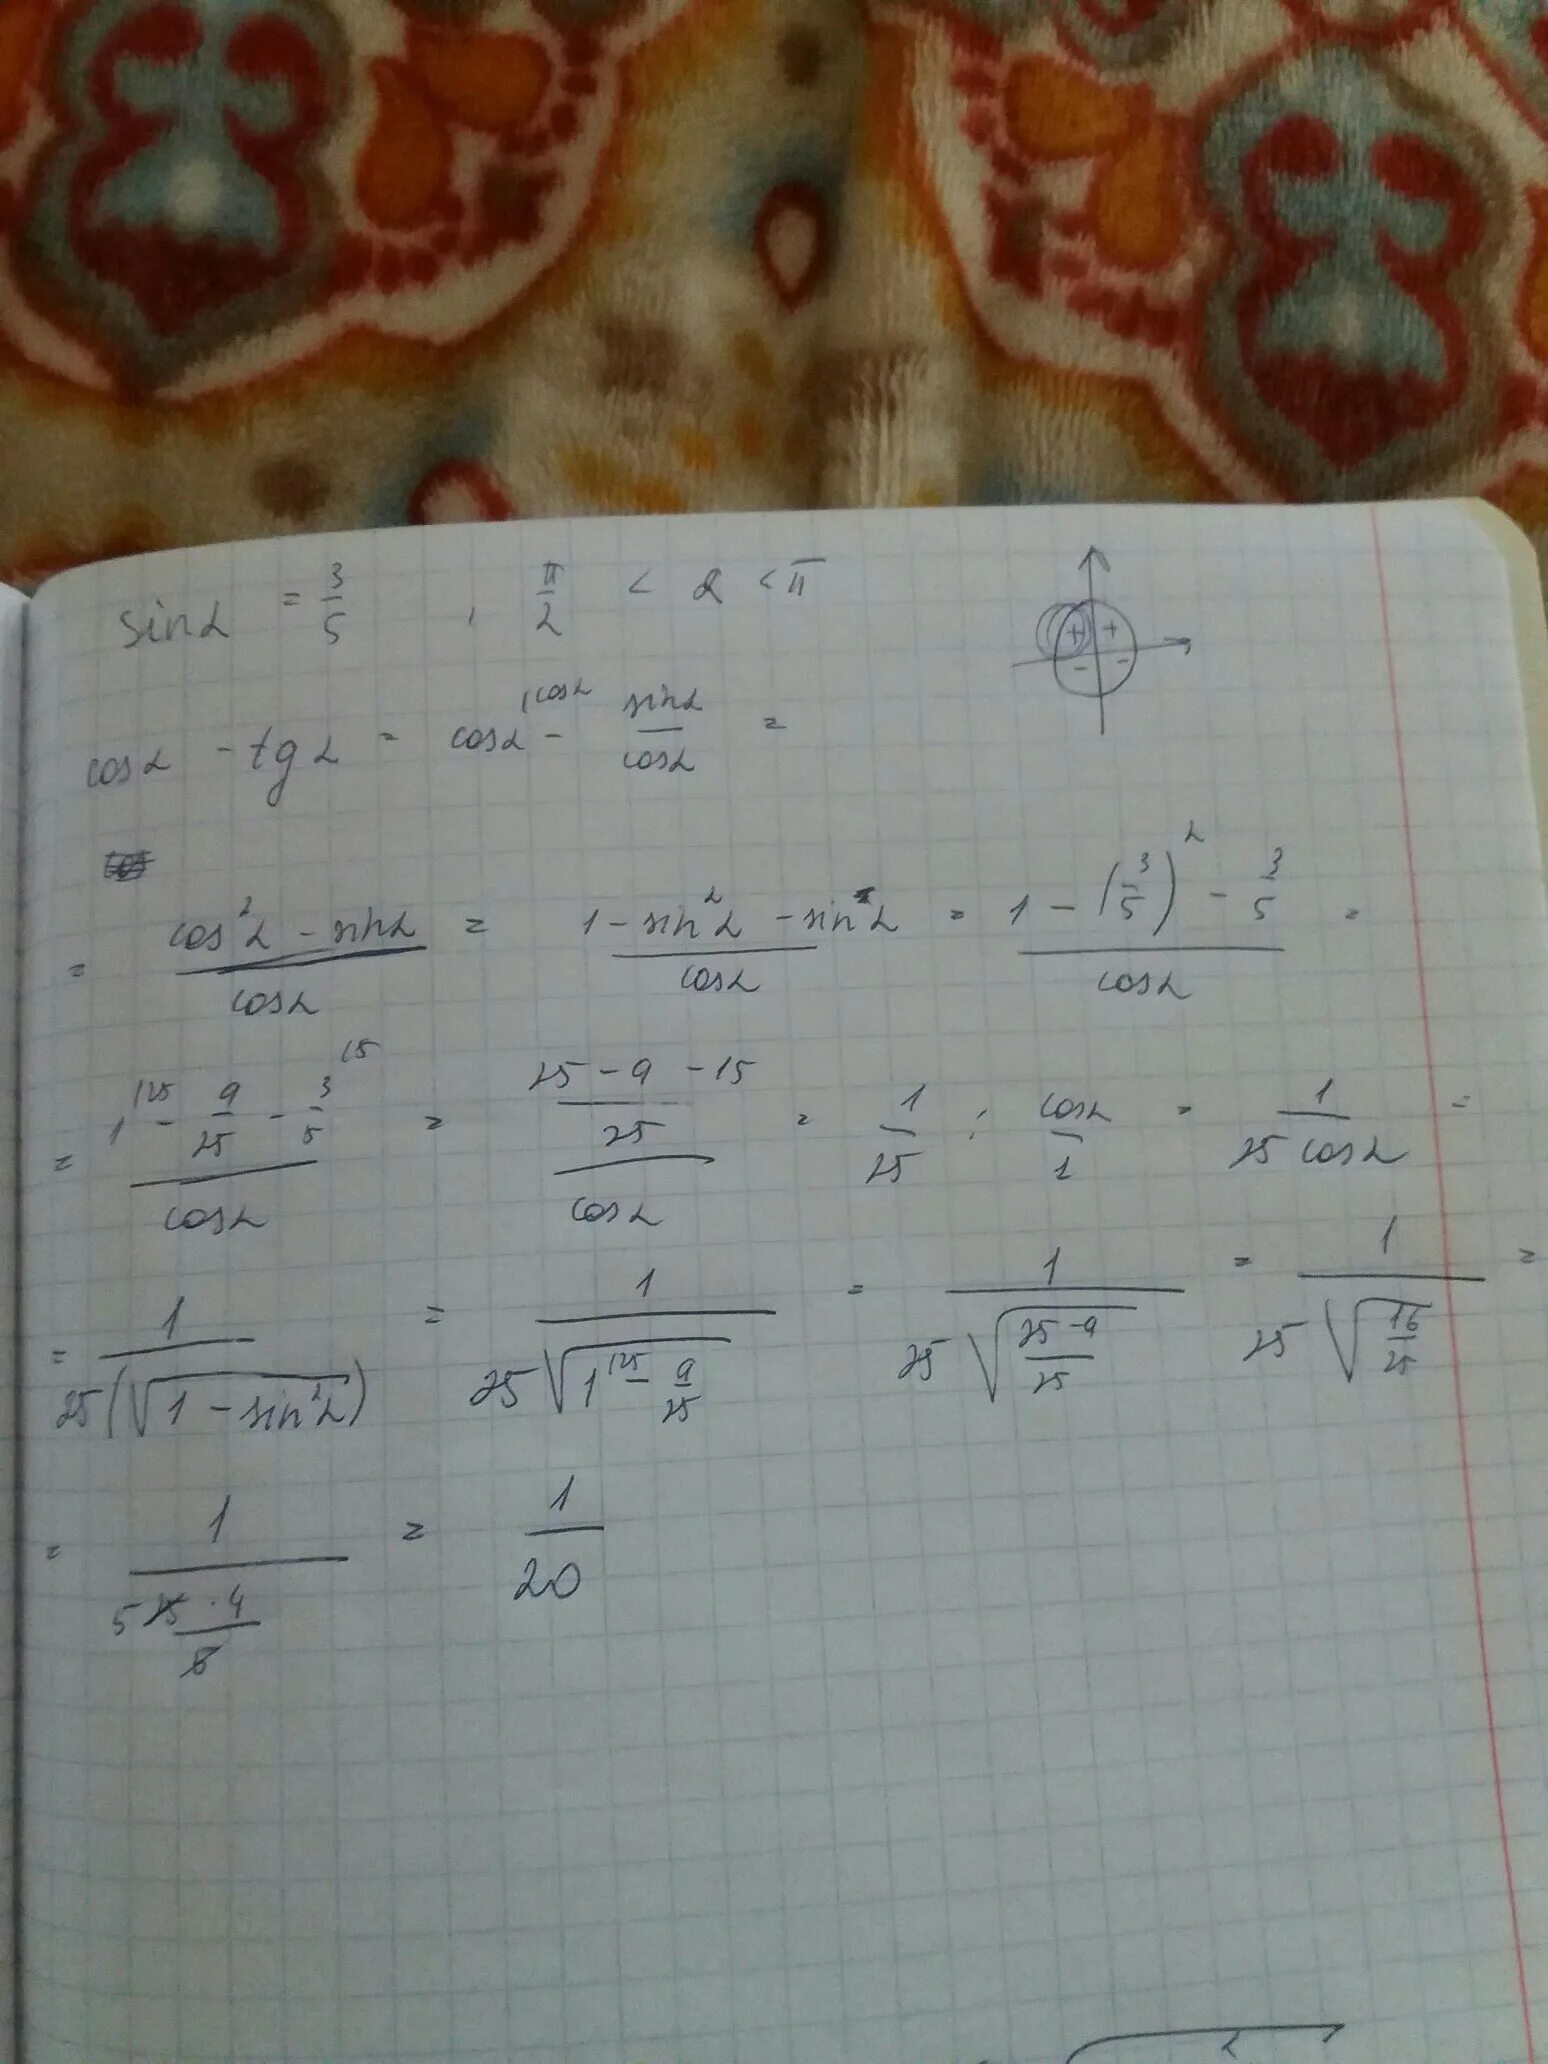 sinα = 3/5 , π/2 < α < π
+ + - -
cosα - tgα = cosα - sinα/cosα =
= (cos²α - sinα)/cosα = (1 - sin²α - sinα)/cosα = (1 - (3/5)² - 3/5)/cosα =
= (1 - 9/25 - 3/5)/cosα = ((25 - 9 - 15)/25)/cosα = 1/25 : cosα/1 = 1/(25 cosα) =
= 1/(25(√(1 - sin²α))) = 1/(25√(1 - 9/25)) = 1/(25√((25-9)/25)) = 1/(25√(16/25)) =
= 1/(25·4/5) = 1/20